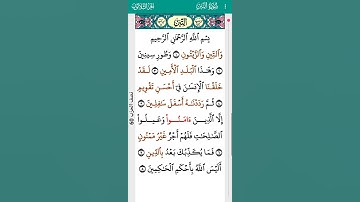 سُورَةُ التِّينِ
الجزء الثلاثون
التِّين
بِسْمِ ٱللَّهِ ٱلرَّحْمَٰنِ ٱلرَّحِيمِ
وَٱلتِّينِ وَٱلزَّيْتُونِ ١ وَطُورِ سِينِينَ
٢ وَهَٰذَا ٱلْبَلَدِ ٱلْأَمِينِ ٣ لَقَدْ
خَلَقْنَا ٱلْإِنسَٰنَ فِىٓ أَحْسَنِ تَقْوِيمٍ
٤ ثُمَّ رَدَدْنَٰهُ أَسْفَلَ سَٰفِلِينَ ٥
إِلَّا ٱلَّذِينَ ءَامَنُوا۟ وَعَمِلُوا۟
ٱلصَّٰلِحَٰتِ فَلَهُمْ أَجْرٌ غَيْرُ مَمْنُونٍ
٦ فَمَا يُكَذِّبُكَ بَعْدُ بِٱلدِّينِ
٧ أَلَيْسَ ٱللَّهُ بِأَحْكَمِ ٱلْحَٰكِمِينَ ٨